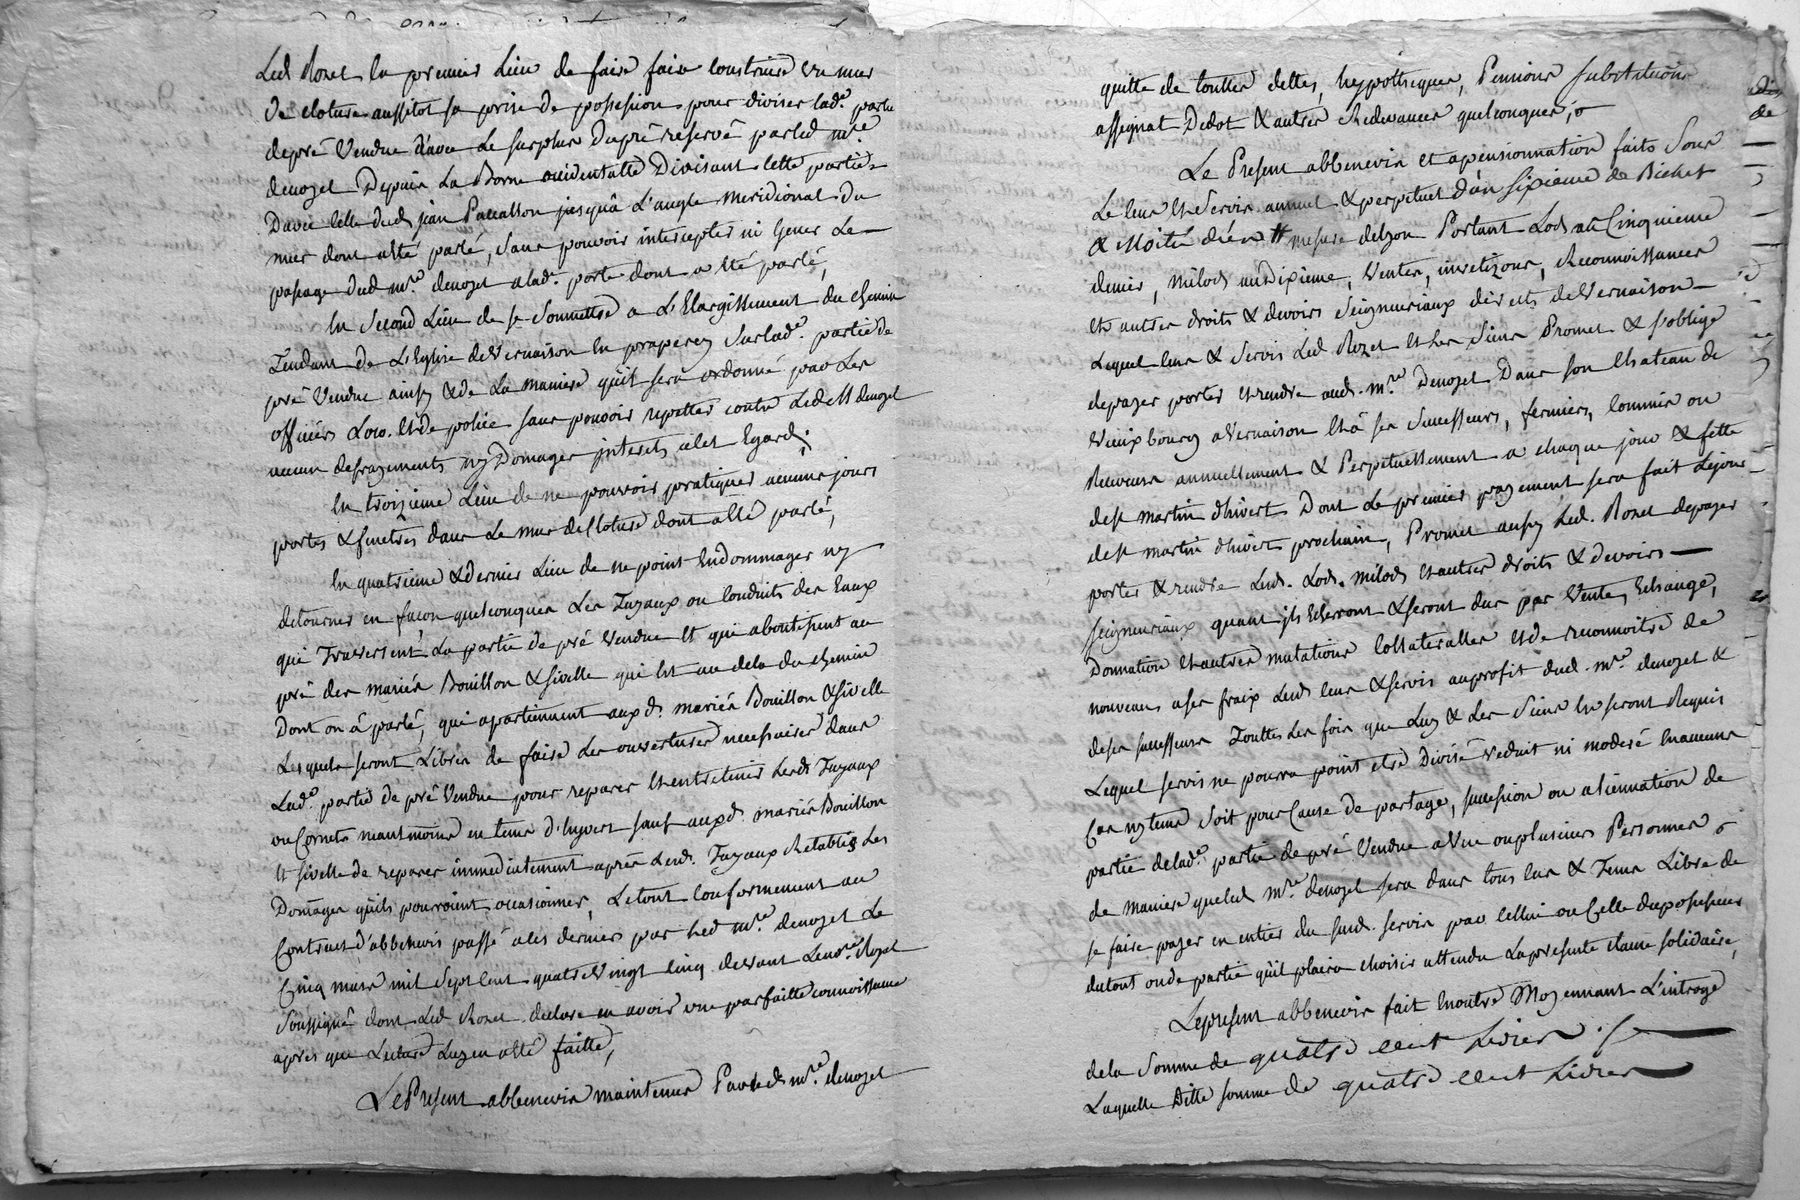 Led Rozet en premier Lieu de faire faire construire un mur
de cloture aussitot sa prise de possession pour diviser lad.e partie
de pré Vendue d'avec Le surplus du pré reservé par led m.re
denozet Depuis La Borne occidentalle Divisant cette partie
D'avec celle dud jean Pacallon jusqu'à L'angle Meridional du
mur dont a été parlé, sans pouvoir intercepter ni gener Le
passage dud m.re denozet a lad.e porte dont a été parlé,
En Second Lieu de se Soumettre a L'Elargissement du chemin
Tendant de L'Eglise de Vernaison en Sur lad.e partie de
pré Vendue ainsy & de La maniere qu'il sera ordonné par Les
officiers Loco. et de police sans pouvoir repetter contre Led M denozet
aucun defrayements ny Domages interets a cet Egard;
En troizieme Lieu de ne pouvoir pratiquer aucuns jours
portes & fenetres dans Le mur de Cloture dont a été parlé,
En quatrieme & dernier Lieu de ne point Endommager ny
detourner en façon quelconques Les Tuyaux ou Conduits des Eaux
qui Traversent La partie de pré Vendue et qui aboutissent au
pré des mariés Bouillon & sivelle qui est au dela du chemin
Dont on a parlé, qui apartiennent auxd. mariés Bouillon & sivelle
Lesquels seront Libres de faire Les ouvertures necessaires dans
Lad.e partie de pré Vendue pour reparer et entretenir Lesd Tuyaux
ou Cornets neantmoins en tems d'hyvert sauf auxd. mariés Bouillon
et sivelle de reparer immediatement après Lesd. Tuyaux Retablis Les
Domages qu'ils pourroient occasionner, Le tout conformement au
Contract d'abbenevis passé a ces derniers par Led m.re denozet Le
Cinq mars mil Sept cent quatre Vingt cinq devant Leno.re Royal
Soussigné dont Led Rozet declare en avoir une parfaitte connoissance
après que Lecture Luy en a été faitte,
Le Present abbenevis maintenu Par led m.re denozet
quitte de touttes dettes, hypotheques, Pensions substitutions
assignat Dedot & autres Redevances quelconques,
Le Present abbenevis et apensionnation faits Sous
Le Cens et Servis annuel & perpetuel d'un sixieme de Bichet
& Moitié d'un mesure delyon Portant Lods au Cinquieme
denier, milods au Dixieme, Ventes, investizons, Reconnoissances
Et autres droits & devoirs Seigneuriaux directs de Vernaison
Lequel Cens & Servis Led Rozet et Les Siens Promet & s'oblige
de payer porter et rendre aud. m.re Denozet Dans son Chateau de
Vieux bourg a Vernaison et a ses Successeurs, fermiers, Commis ou
Receveurs annuellement & Perpetuellement a chaque jour & fette
de st martin d'hivert Dont Le premier payement sera fait Lejour
de st martin d'hivert prochain, Promet aussy Led. Rozet depayer
porter & rendre Lesd. Lods, milods et autres droits & devoirs
seigneuriaux quant ils Echerront & seront dus par Vente, Echange,
Donnation et autres mutations Collateralles et de reconnoitre de
nouveau a ses fraix Lesd Cens & servis auprofit dud. m.re denozet &
de ses successeurs Touttes Les fois que Luy & Les Siens En seront Requis
Lequel servis ne pourra point etre Divisé reduit ni moderé En aucuns
Cas ny tems soit pour Cause de partage, succession ou alienation de
partie de lad.e partie de pré Vendue a Une ou plusieurs Personnes
de maniere que led m.re denozet sera dans tous Cas & Tems Libre de
se faire payer en entier du susd. servis par Celluy ou Celle des possesseurs
du tout ou de partie qu'il plaira choisir attendu La presente Clause solidaire,
Le present abbenevis fait En outre Moyennant L'introge
de la Somme de quatre cent Livres
Laquelle Ditte somme de quatre cent Livres